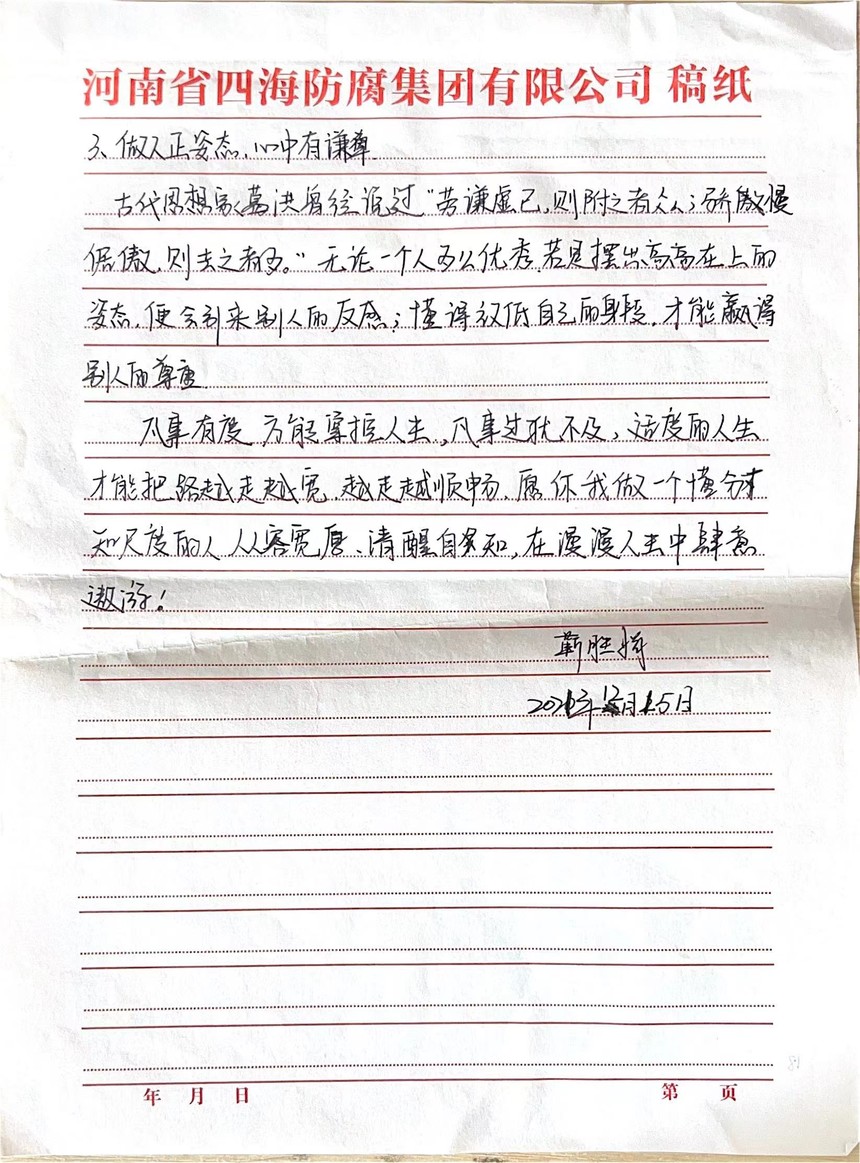 河南省四海防腐集团有限公司 稿纸
3、做人正姿态,心中有谦卑
古代思想家葛洪曾经说过"劳谦虚己,则附之者众;骄傲慢
倨傲,则去之者多。"无论一个人多么优秀,若是摆出高高在上的
姿态,便会引来别人的反感;懂得放低自己的身段,才能赢得
别人的尊重
凡事有度,方能掌控人生,凡事过犹不及,适度的人生
才能把路越走越宽,越走越顺畅,愿你我做一个懂分寸
知尺度的人 从容宽厚、清醒自知,在漫漫人生中肆意
遨游!
靳胜
年 月 日
第 页